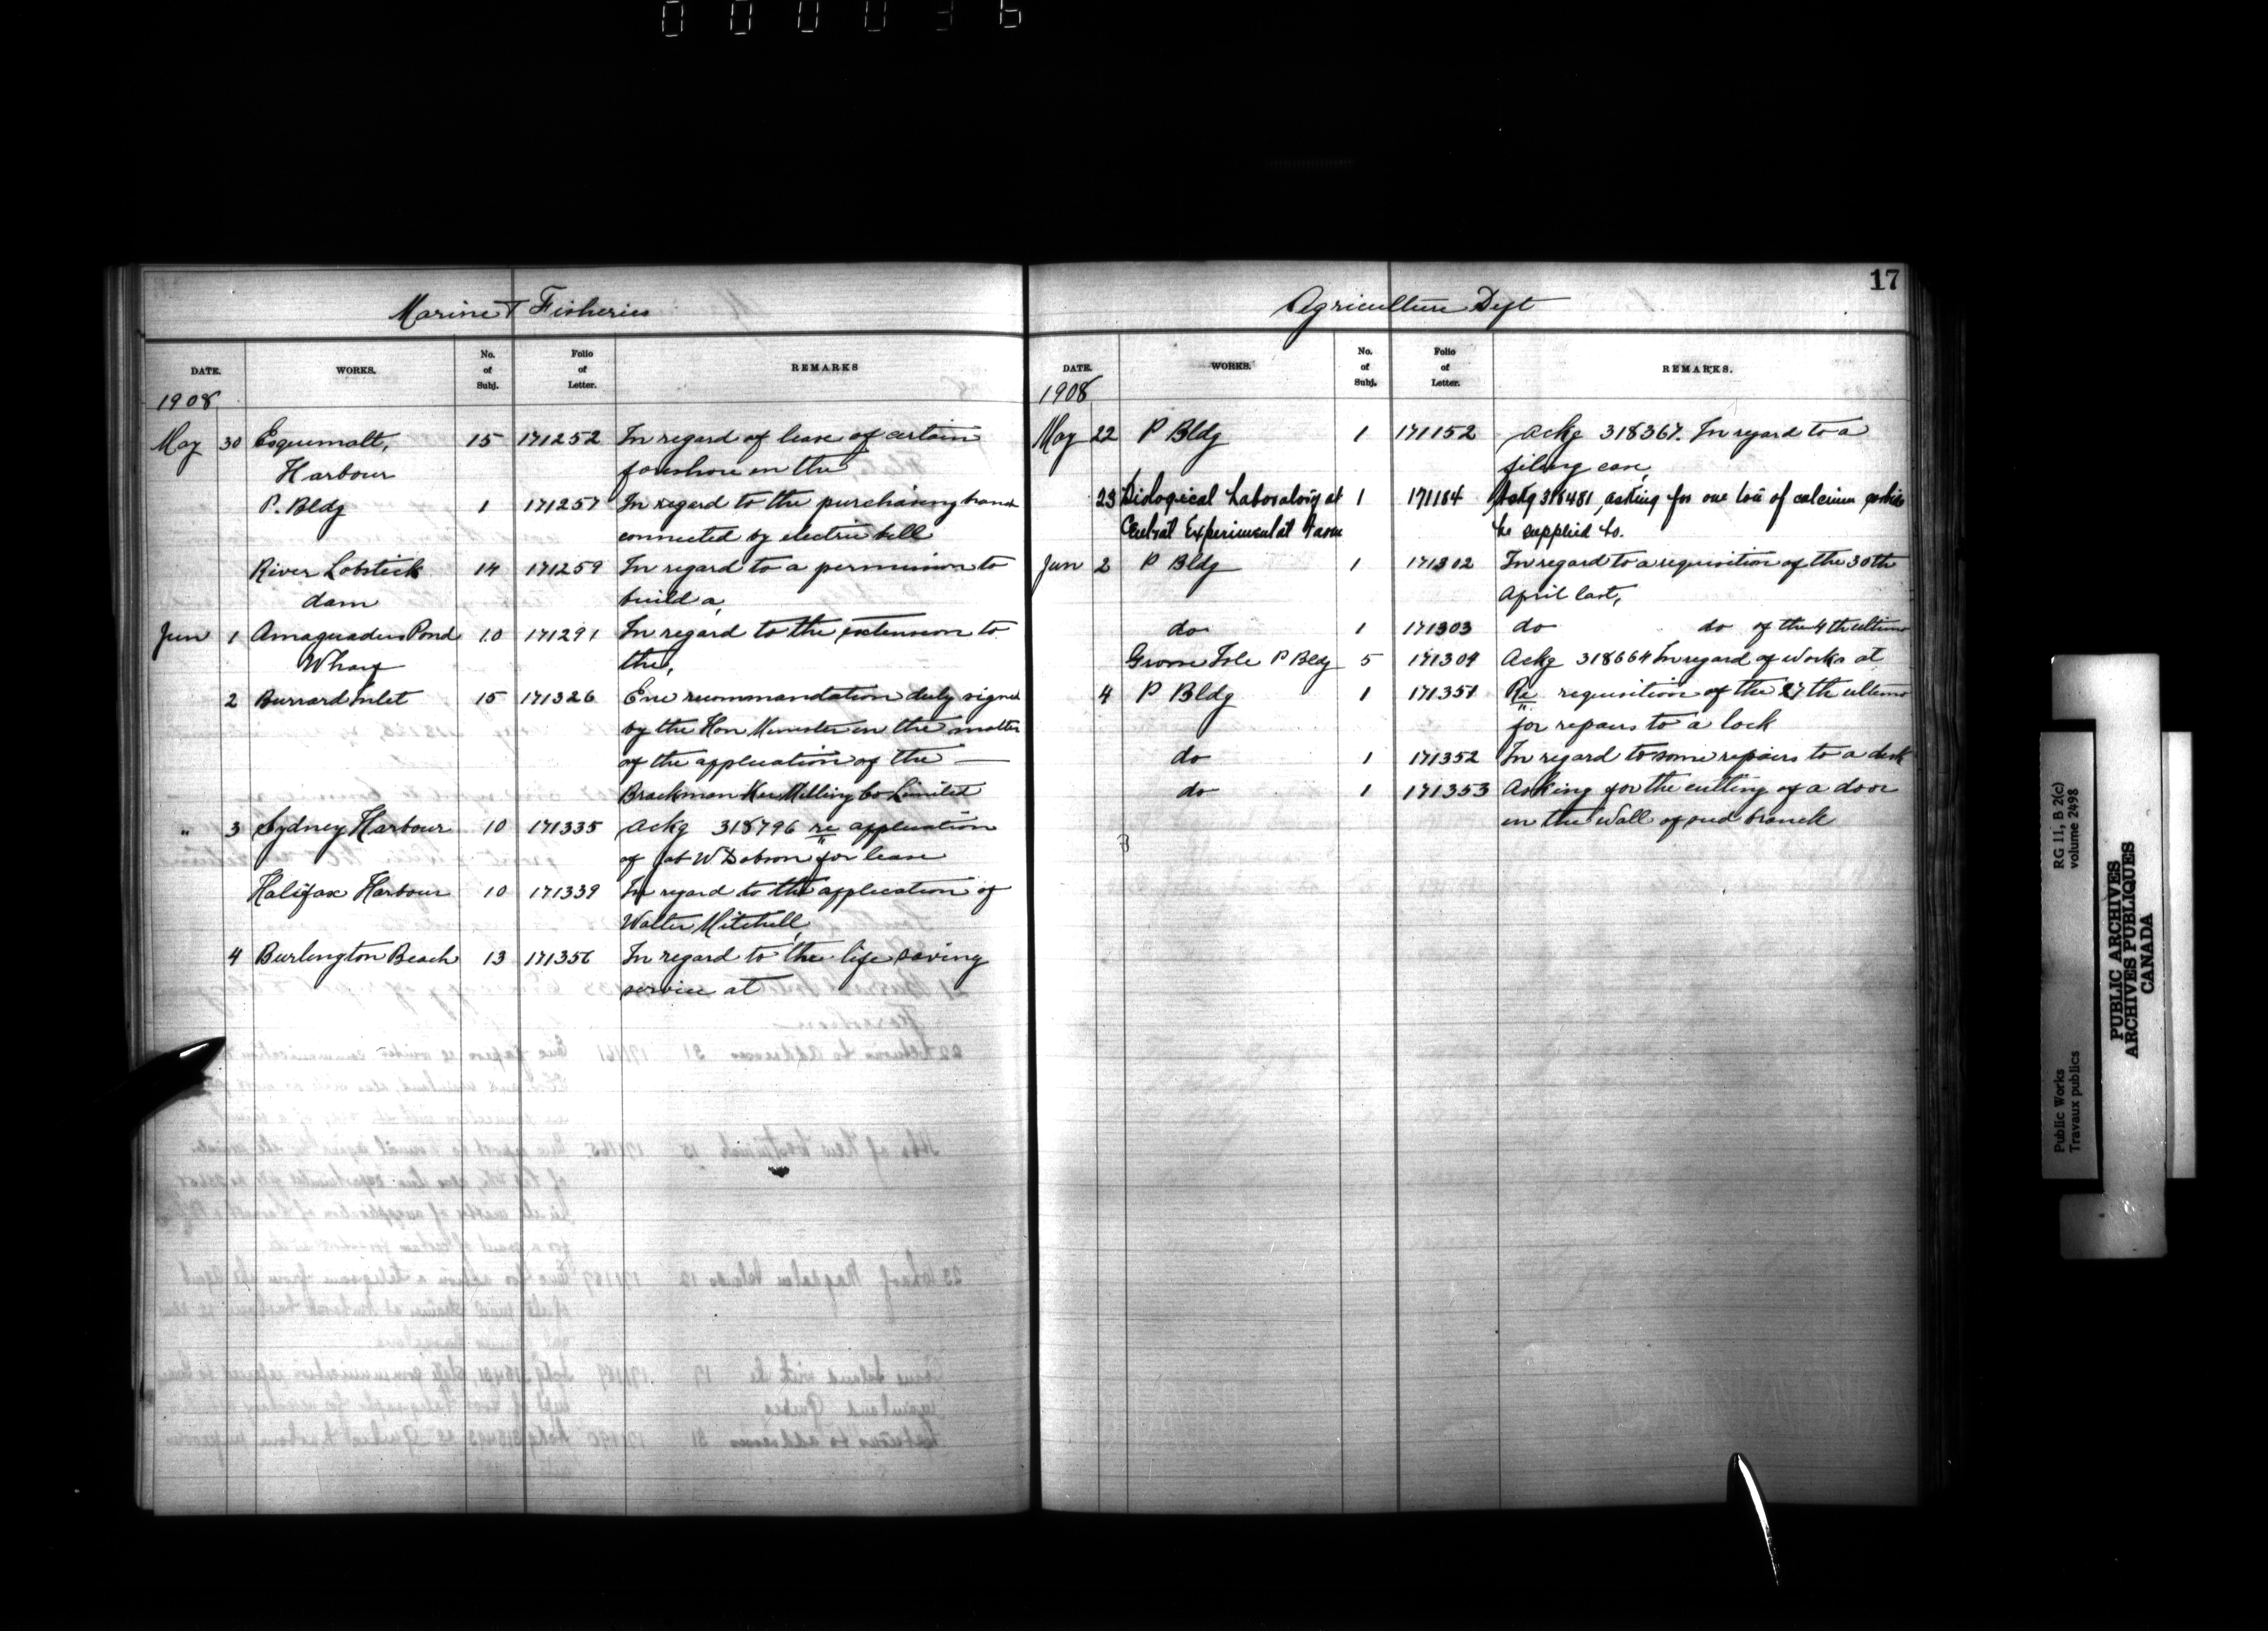 000036
Marine & Fisheries
DATE. WORKS. No. of Subj. Folio of Letter. REMARKS
1908
May 30 Esquimalt, 15 171252 In regard of lease of certain
Harbour foreshore in the
P. Bldg 1 171257 In regard to the purchasing branch
connected by electric bell
River Lobstick 14 171259 In regard to a permission to
dam build a,
Jun 1 Amaguadus Pond 10 171291 In regard to the extension to
Wharf the,
2 Burrard Inlet 15 171326 Enc recommandation duly signed
by the Hon Minister in the matter
of the application of the —
Brackman Ker Milling Co Limited
" 3 Sydney Harbour 10 171335 Ackg 318796 re application
of W Dobson for lease
Halifax Harbour 10 171339 In regard to the application of
Walter Mitchell,
4 Burlington Beach 13 171356 In regard to the life saving
service at
17
Agriculture Dept
DATE. WORKS. No. of Subj. Folio of Letter. REMARKS.
1908
May 22 P Bldg 1 171152 Ackg 318367. In regard to a
filing case,
23 Biological Laboratory at 1 171184 Ackg 318481, asking for one ton of calcium carbide
Central Experimental Farm be supplied to.
Jun 2 P Bldg 1 171302 In regard to a requisition of the 30th
April last,
do 1 171303 do do of the 4th ultimo
Grosse Isle P Bldg 5 171304 Ackg 318664 In regard of works at
4 P Bldg 1 171351 Re requisition of the 27th ultimo
for repairs to a lock
do 1 171352 In regard to some repairs to a desk
do 1 171353 Asking for the cutting of a door
in the wall of said branch
Public Works
Travaux publics
RG 11, B 2(c)
volume 2498
PUBLIC ARCHIVES
ARCHIVES PUBLIQUES
CANADA